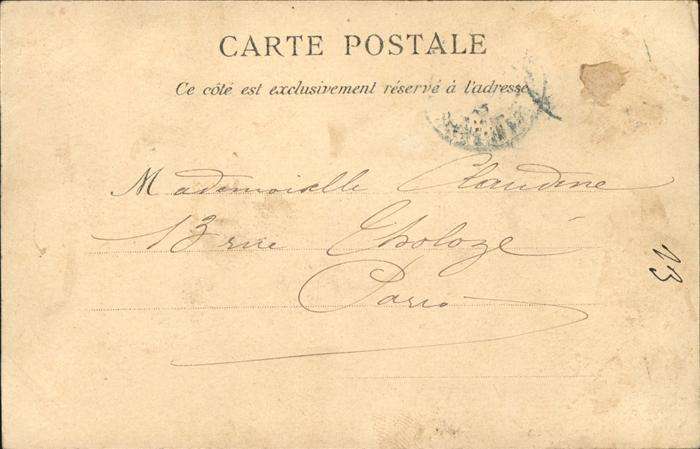 CARTE POSTALE
Ce côté est exclusivement réservé à l'adresse
Mademoiselle Claudine
13 rue Tholozé
Paris
13